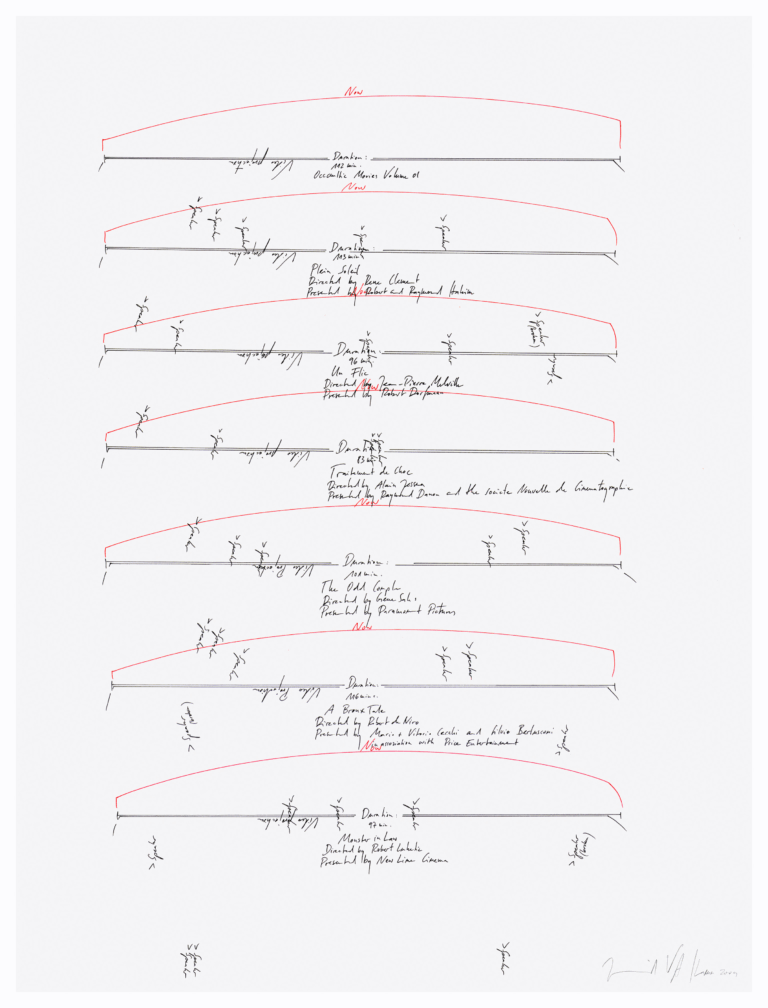 Now
Video projection
Duration:
112 min.
Oceanthic Movies Volume 01
Now
> Speaker
> Speaker
> Speaker
> Speaker
> Speaker
Video projection
Duration:
113 min.
Plein Soleil
Directed by Rene Clement
Presented by Robert and Raymond Hakim
Now
> Speaker
> Speaker
> Speaker
> Speaker
> Speaker
> Speaker
Video projection
Duration:
96 min.
Un Flic
Directed by Jean-Pierre Melville
Presented by Robert Dorfmann
Now
> Speaker
> Speaker
> Speaker
> Speaker
Video projection
Duration:
83 min.
Traitement de Choc
Directed by Alain Jessua
Presented by Raymond Danon and the societe Nouvelle de Cinematographie
Now
> Speaker
> Speaker
> Speaker
> Speaker
> Speaker
Video Projection
Duration:
101 min.
The Odd Couple
Directed by Gene Saks
Presented by Paramount Pictures
Now
> Speaker
> Speaker
> Speaker
> Speaker
> Speaker
Video Projection
Duration:
116 min.
A Bronx Tale
Directed by Robert de Niro
Presented by Mario + Vittorio Cecchi and Silvio Berlusconi
in association with Price Entertainment
> Speaker
> Speaker
Now
> Speaker
> Speaker
> Speaker
Video projection
Duration:
97 min.
Monster in Law
Directed by Robert Luketic
Presented by New Line Cinema
> Speaker
> Speaker
> Speaker
> Speaker
> Speaker